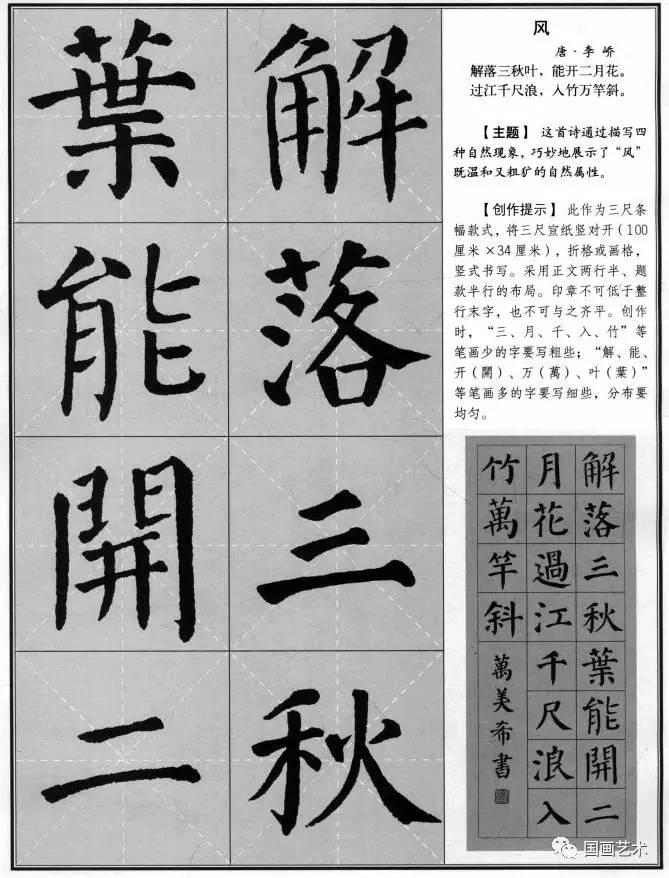 解落三秋
葉能開二
风
唐·李峤
解落三秋叶，能开二月花。
过江千尺浪，入竹万竿斜。
【主题】 这首诗通过描写四
种自然现象，巧妙地展示了“风”
既温和又粗犷的自然属性。
【创作提示】 此作为三尺条
幅款式，将三尺宣纸竖对开（100
厘米×34厘米），折格或画格，
竖式书写。采用正文两行半、题
款半行的布局。印章不可低于整
行末字，也不可与之齐平。创作
时，“三、月、千、入、竹”等
笔画少的字要写粗些；“解、能、
开（開）、万（萬）、叶（葉）”
等笔画多的字要写细些，分布要
均匀。
解落三秋葉能開二
月花過江千尺浪入
竹萬竿斜
萬美希書
国画艺术